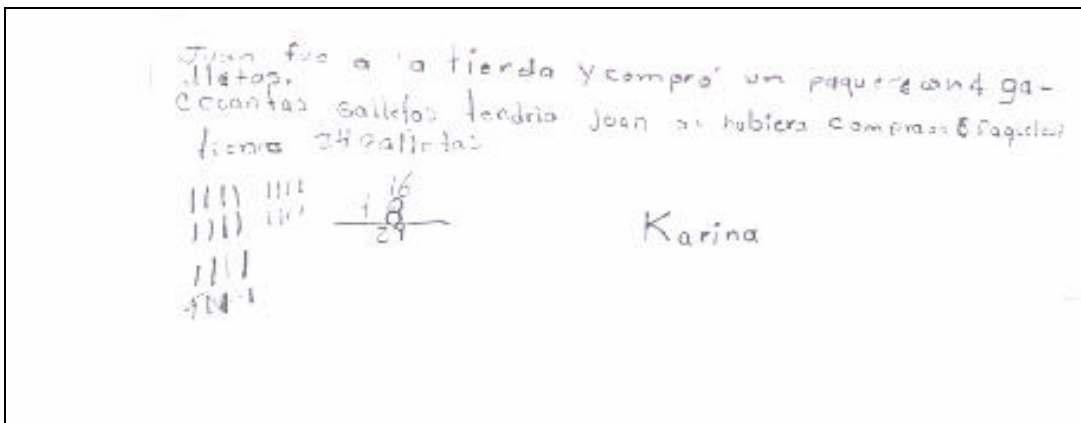 Juan fue a la tienda y compró un paquete con 4 ga-
lletas.
Ccuantas galletas tendria Juan si hubiera comprado 6 Paquetes
tiene 24 galletas
16
+ 8
24
Karina